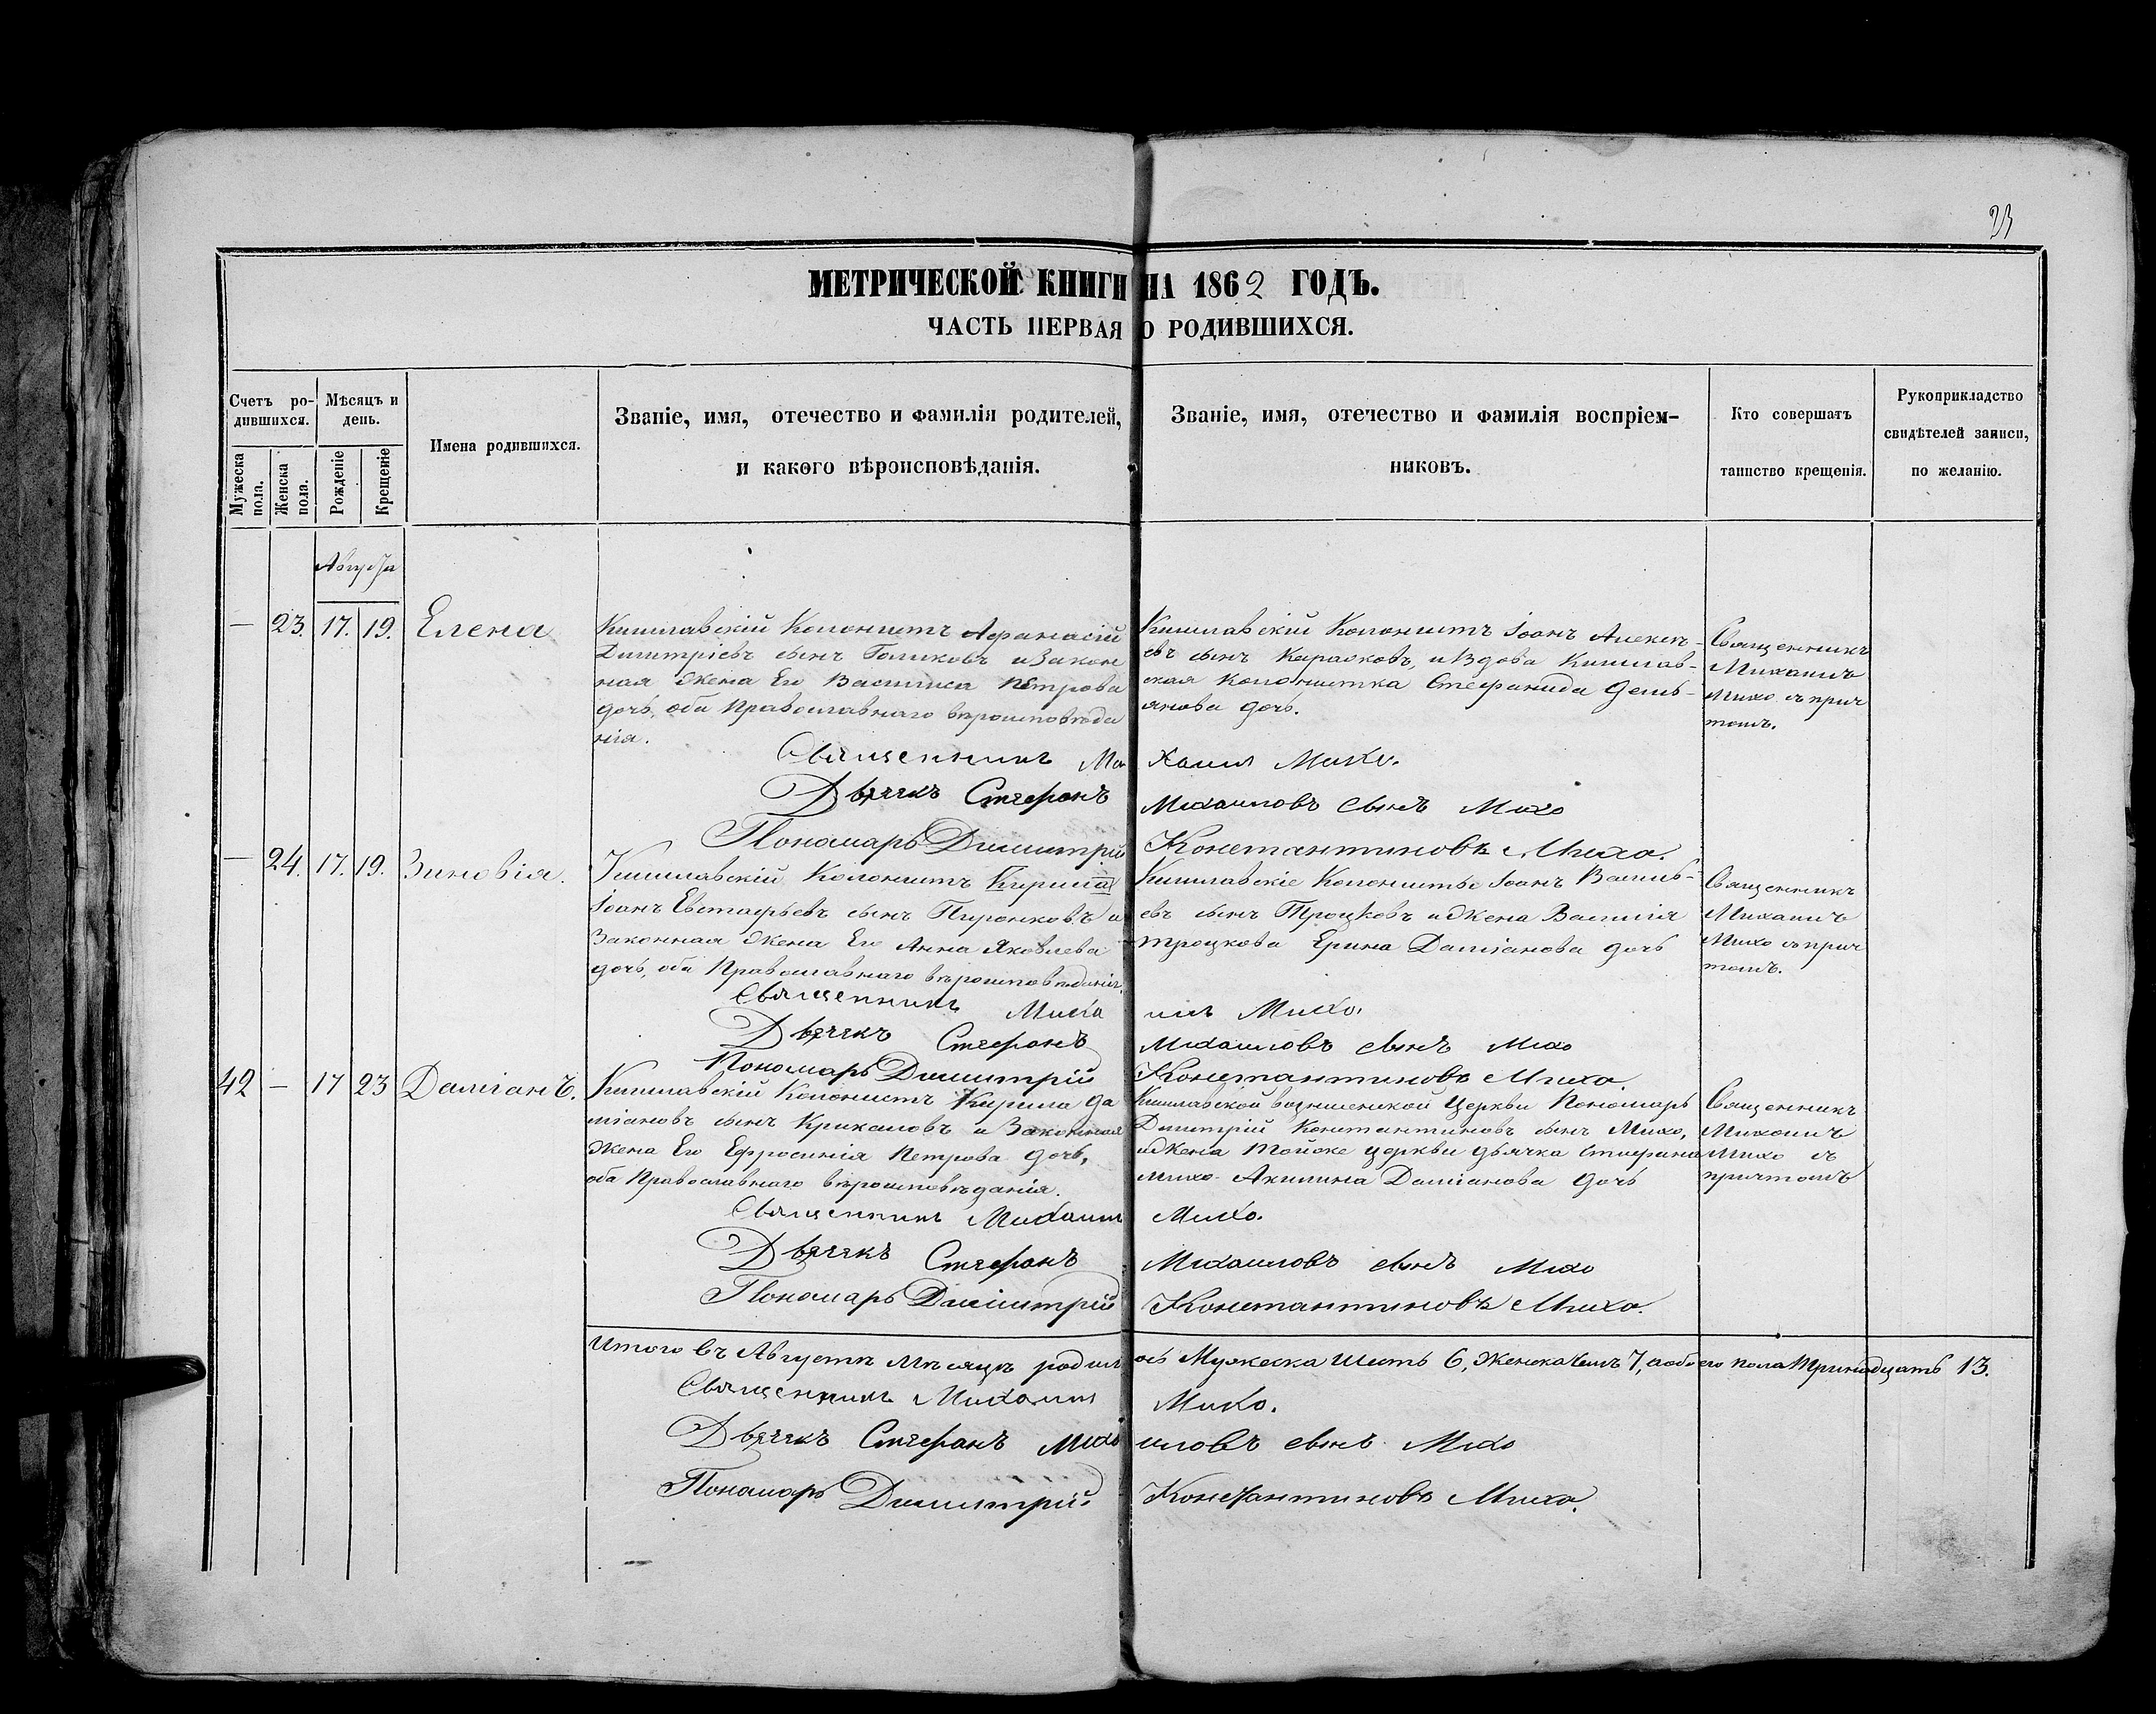 23
МЕТРИЧЕСКОЙ КНИГИ НА 1862 ГОДЪ.
ЧАСТЬ ПЕРВАЯ О РОДИВШИХСЯ.
Счетъ родившихся.
Мужеска пола.
Женска пола.
Мѣсяцъ и день.
Рожденіе
Крещеніе
Имена родившихся.
Званіе, имя, отечество и фамилія родителей,
и какого вѣроисповѣданія.
Званіе, имя, отечество и фамилія воспріем-
никовъ.
Кто совершатъ
таинство крещенія.
Рукоприкладство
свидѣтелей записи,
по желанію.
Августа
— 23. 17. 19. Елена
Кишлавскій Колонистъ Афанасій
Димитріевъ сынъ Голиковъ и Закон
ная жена Его Василиса Петрова
дочь, оба Православнаго вѣроисповѣда
нія.
Кишлавскій Колонистъ Іоанъ Алексѣ-
евъ сынъ Карасковъ, и Вдова Кишлав-
ская Колонистка Стефанида Демь-
янова дочь.
Священникъ
Михаилъ
Михо съ прич
томъ.
Священникъ Михаилъ Михо.
Дьячекъ Стефанъ Михаиловъ сынъ Михо
Пономарь Димитрій Константиновъ Михо.
— 24. 17. 19. Зиновія.
Кишлавскій Колонистъ Кирила
Іоанъ Евстафьевъ сынъ Пиронковъ и
Законная жена Его Анна Яковлева
дочь, оба Православнаго вѣроисповѣданія.
Кишлавскіе Колонисты Іоанъ Василь-
евъ сынъ Троцковъ и жена Василія
Троцкова Ерина Даміанова дочь
Священникъ
Михаилъ
Михо съ прич
томъ.
Священникъ Михаилъ Михо.
Дьячекъ Стефанъ Михаиловъ сынъ Михо
Пономарь Димитрій Константиновъ Михо.
42 — 17 23 Даміанъ.
Кишлавскій Колонистъ Кирила Да
міановъ сынъ Крикаловъ и Законная
жена Его Ефросинія Петрова дочь,
оба Православнаго вѣроисповѣданія.
Кишлавской вознесенской Церкви Пономарь
Димитрій Константиновъ сынъ Михо,
и жена тойже церкви дьячка Стефана
Михо Акилина Даміанова дочь
Священникъ
Михаилъ
Михо съ
причтомъ
Священникъ Михаилъ Михо.
Дьячекъ Стефанъ Михаиловъ сынъ Михо
Пономарь Димитрій Константиновъ Михо.
Итого въ Августѣ Мѣсяцѣ родилось Мужеска шесть 6, женска семь 7, а обоего пола тринадцать 13.
Священникъ Михаилъ Михо.
Дьячекъ Стефанъ Михаиловъ сынъ Михо
Пономарь Димитрій Константиновъ Михо.